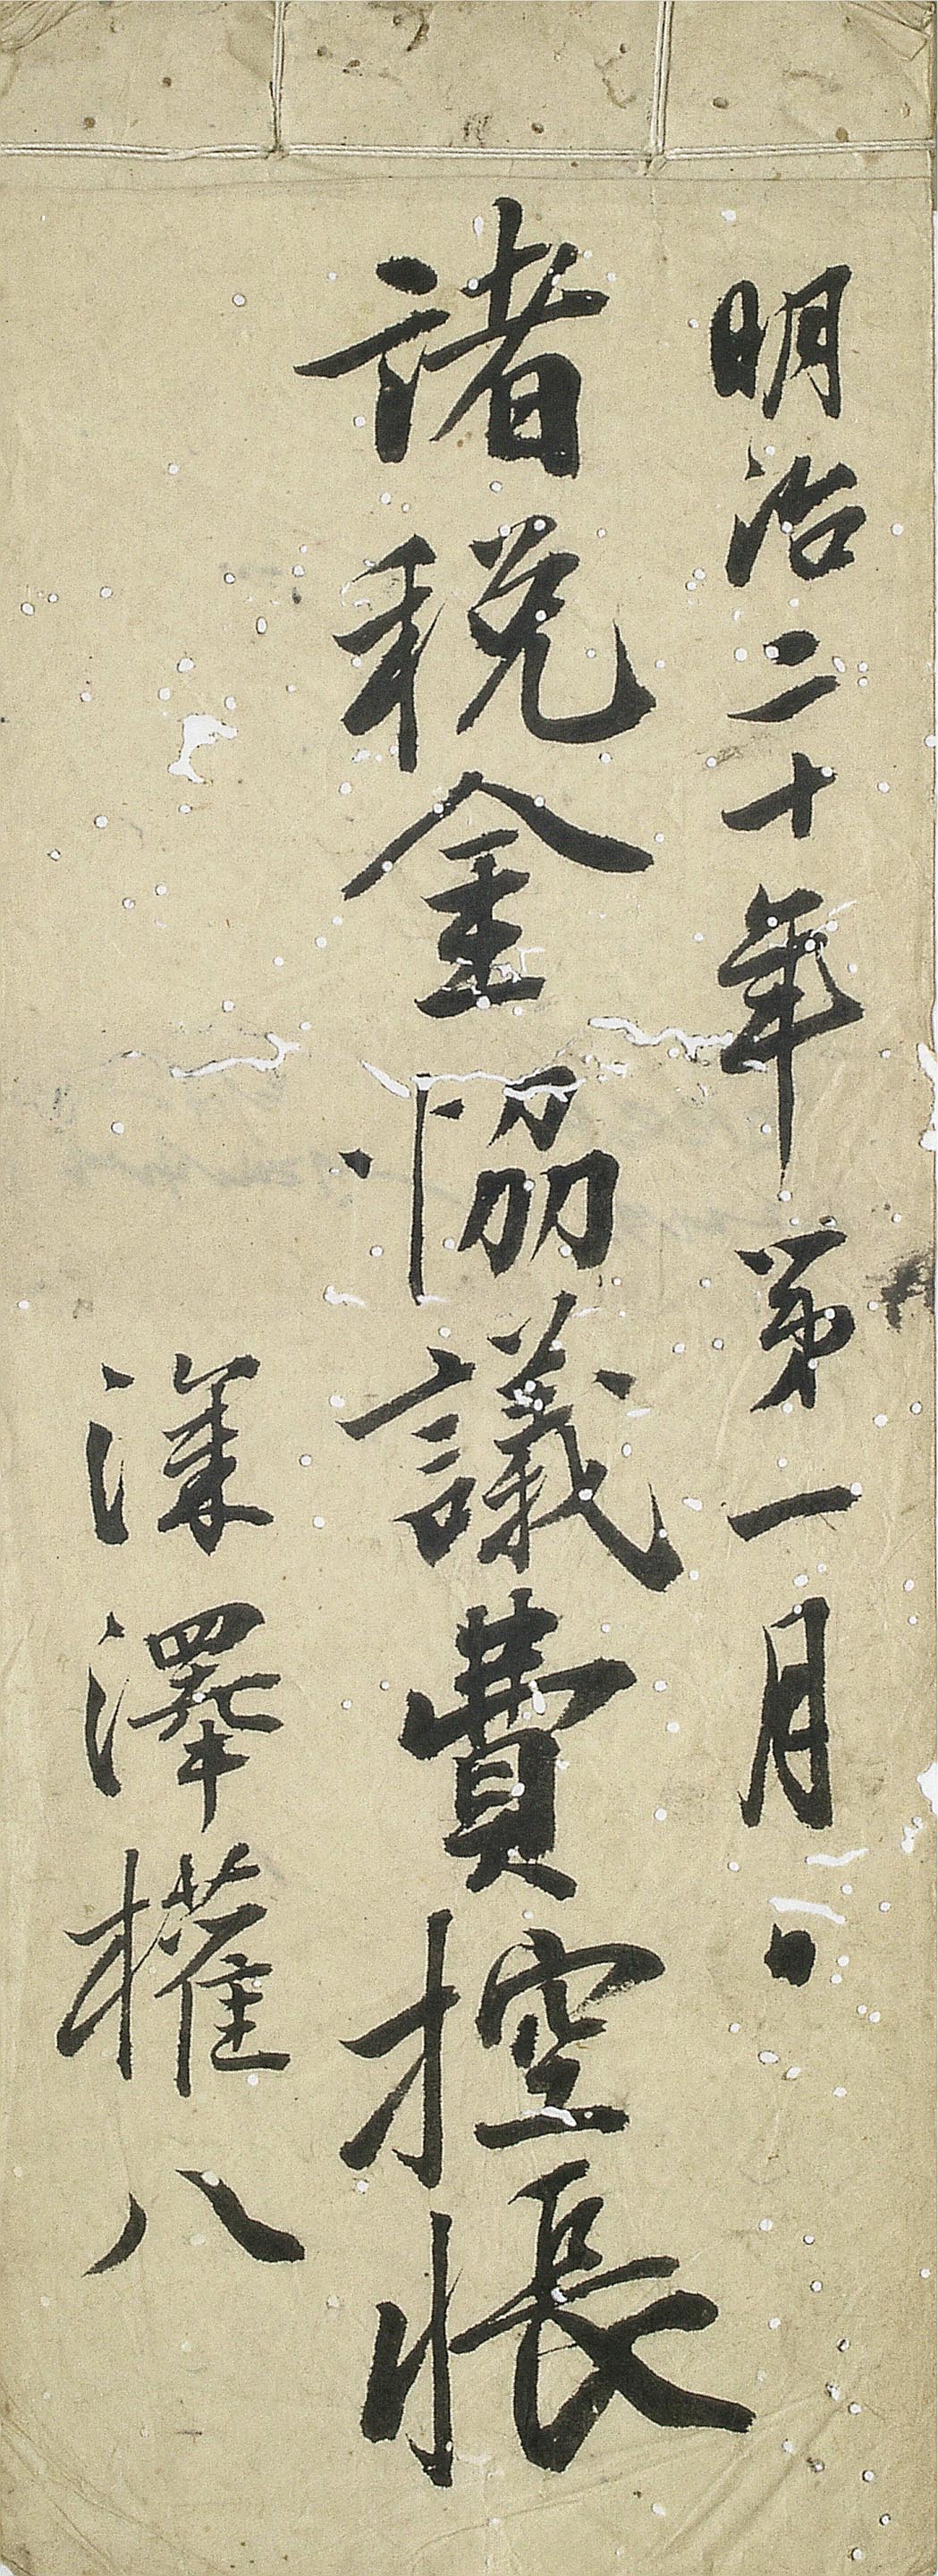 明治二十年第一月
諸税金協議費控帳
深澤權八